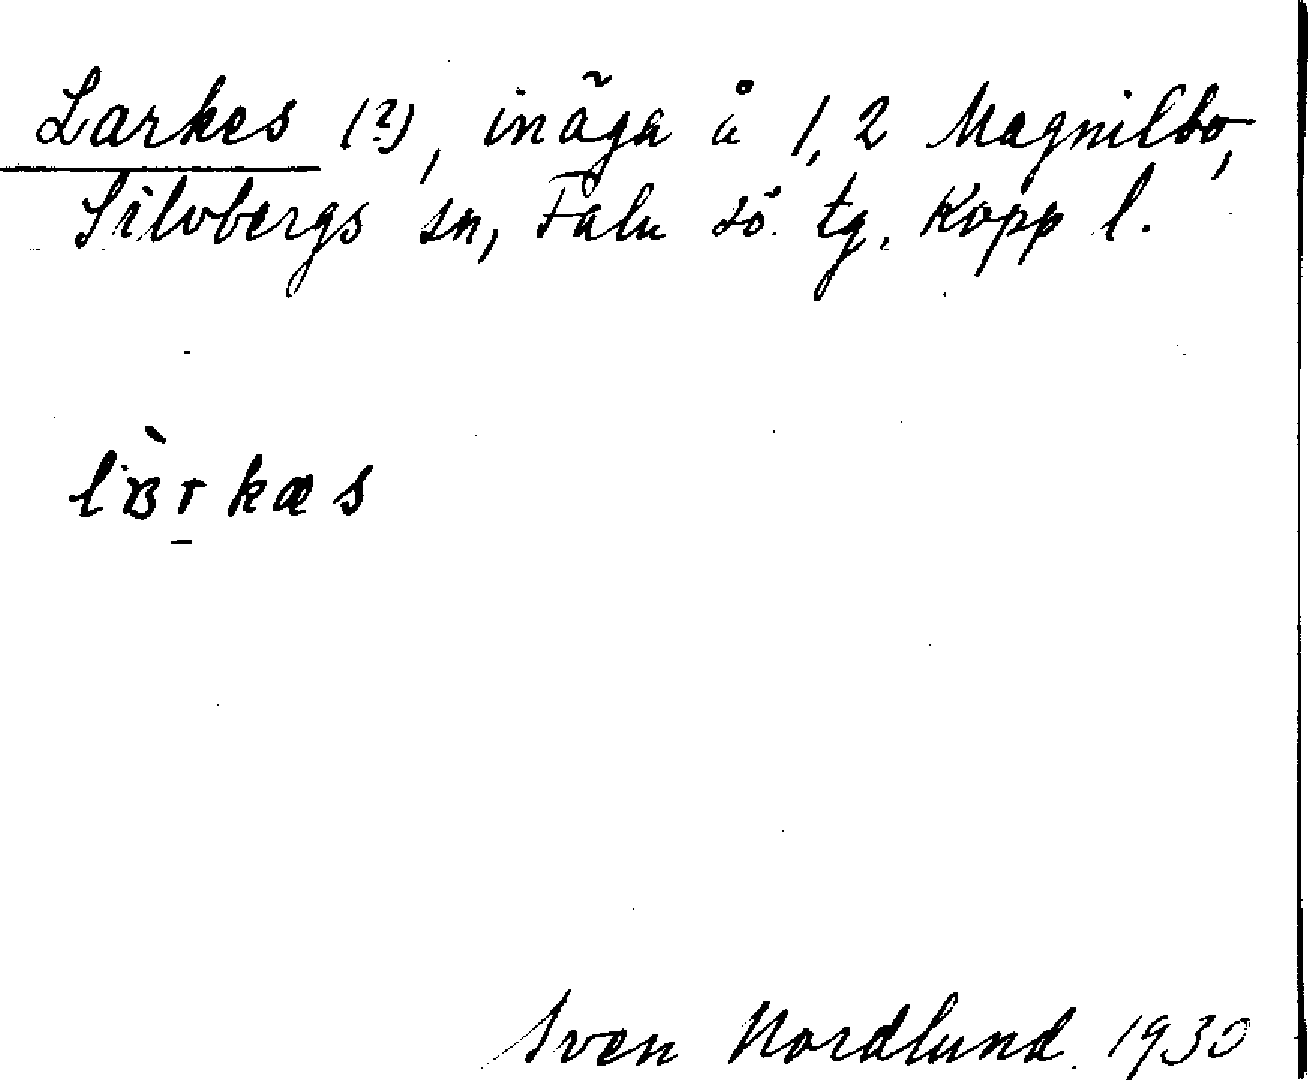 Larkes (?), inäga å 1, 2 Magnilbo,
Silvbergs sn, Falu sö. tg. Kopp l.
lʙ̀rkæs
Sven Nordlund. 1930